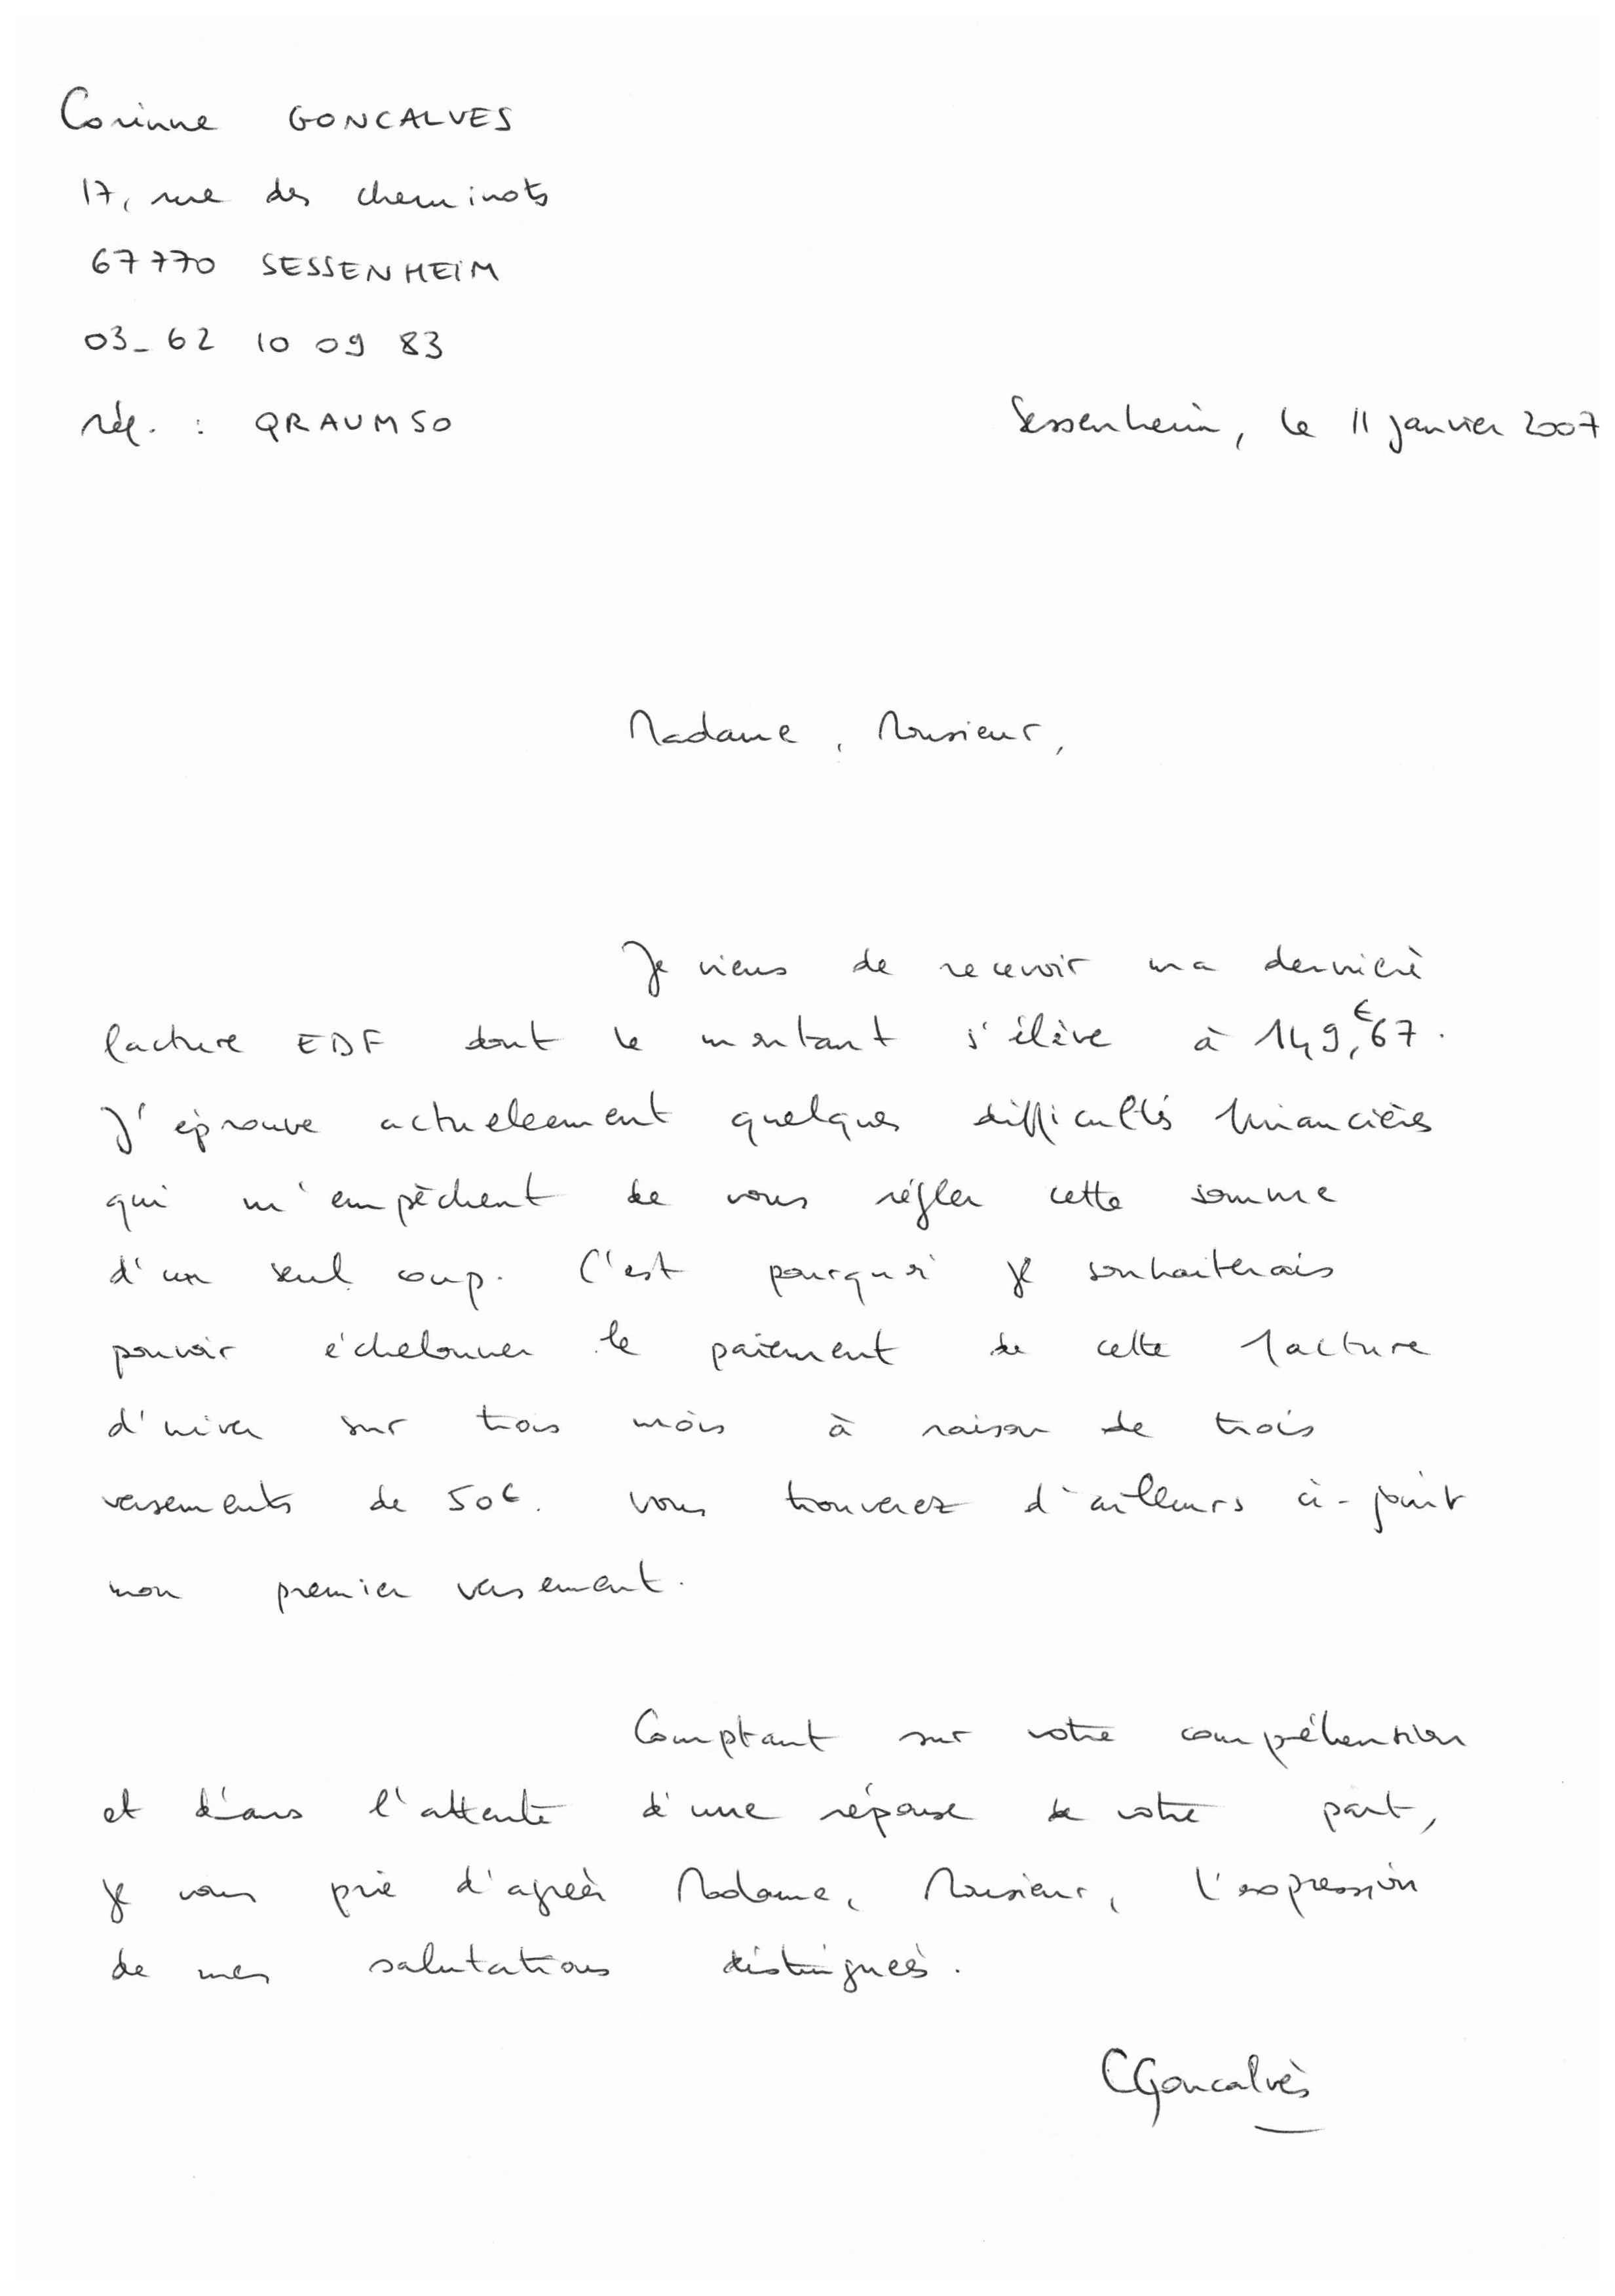 Corinne GONCALVES
17, rue des cheminots
67770 SESSENHEIM
03_ 62 10 09 83
réf. : QRAUMSO
Sessenheim, le 11 janvier 2007
Madame, Monsieur,
Je viens de recevoir ma dernière
facture EDF dont le montant s'élève à 149,€67.
J'éprouve actuellement quelques difficultés financières
qui m'empêchent de vous régler cette somme
d'un seul coup. C'est pourquoi je souhaiterais
pouvoir échelonner le paiement de cette facture
d'hiver sur trois mois à raison de trois
versements de 50€. Vous trouverez d'ailleurs ci-joint
mon premier versement.
Comptant sur votre compréhension
et dans l'attente d'une réponse de votre part,
je vous prie d'agréer Madame, Monsieur, l'expression
de mes salutations distinguées.
CGoncalvès